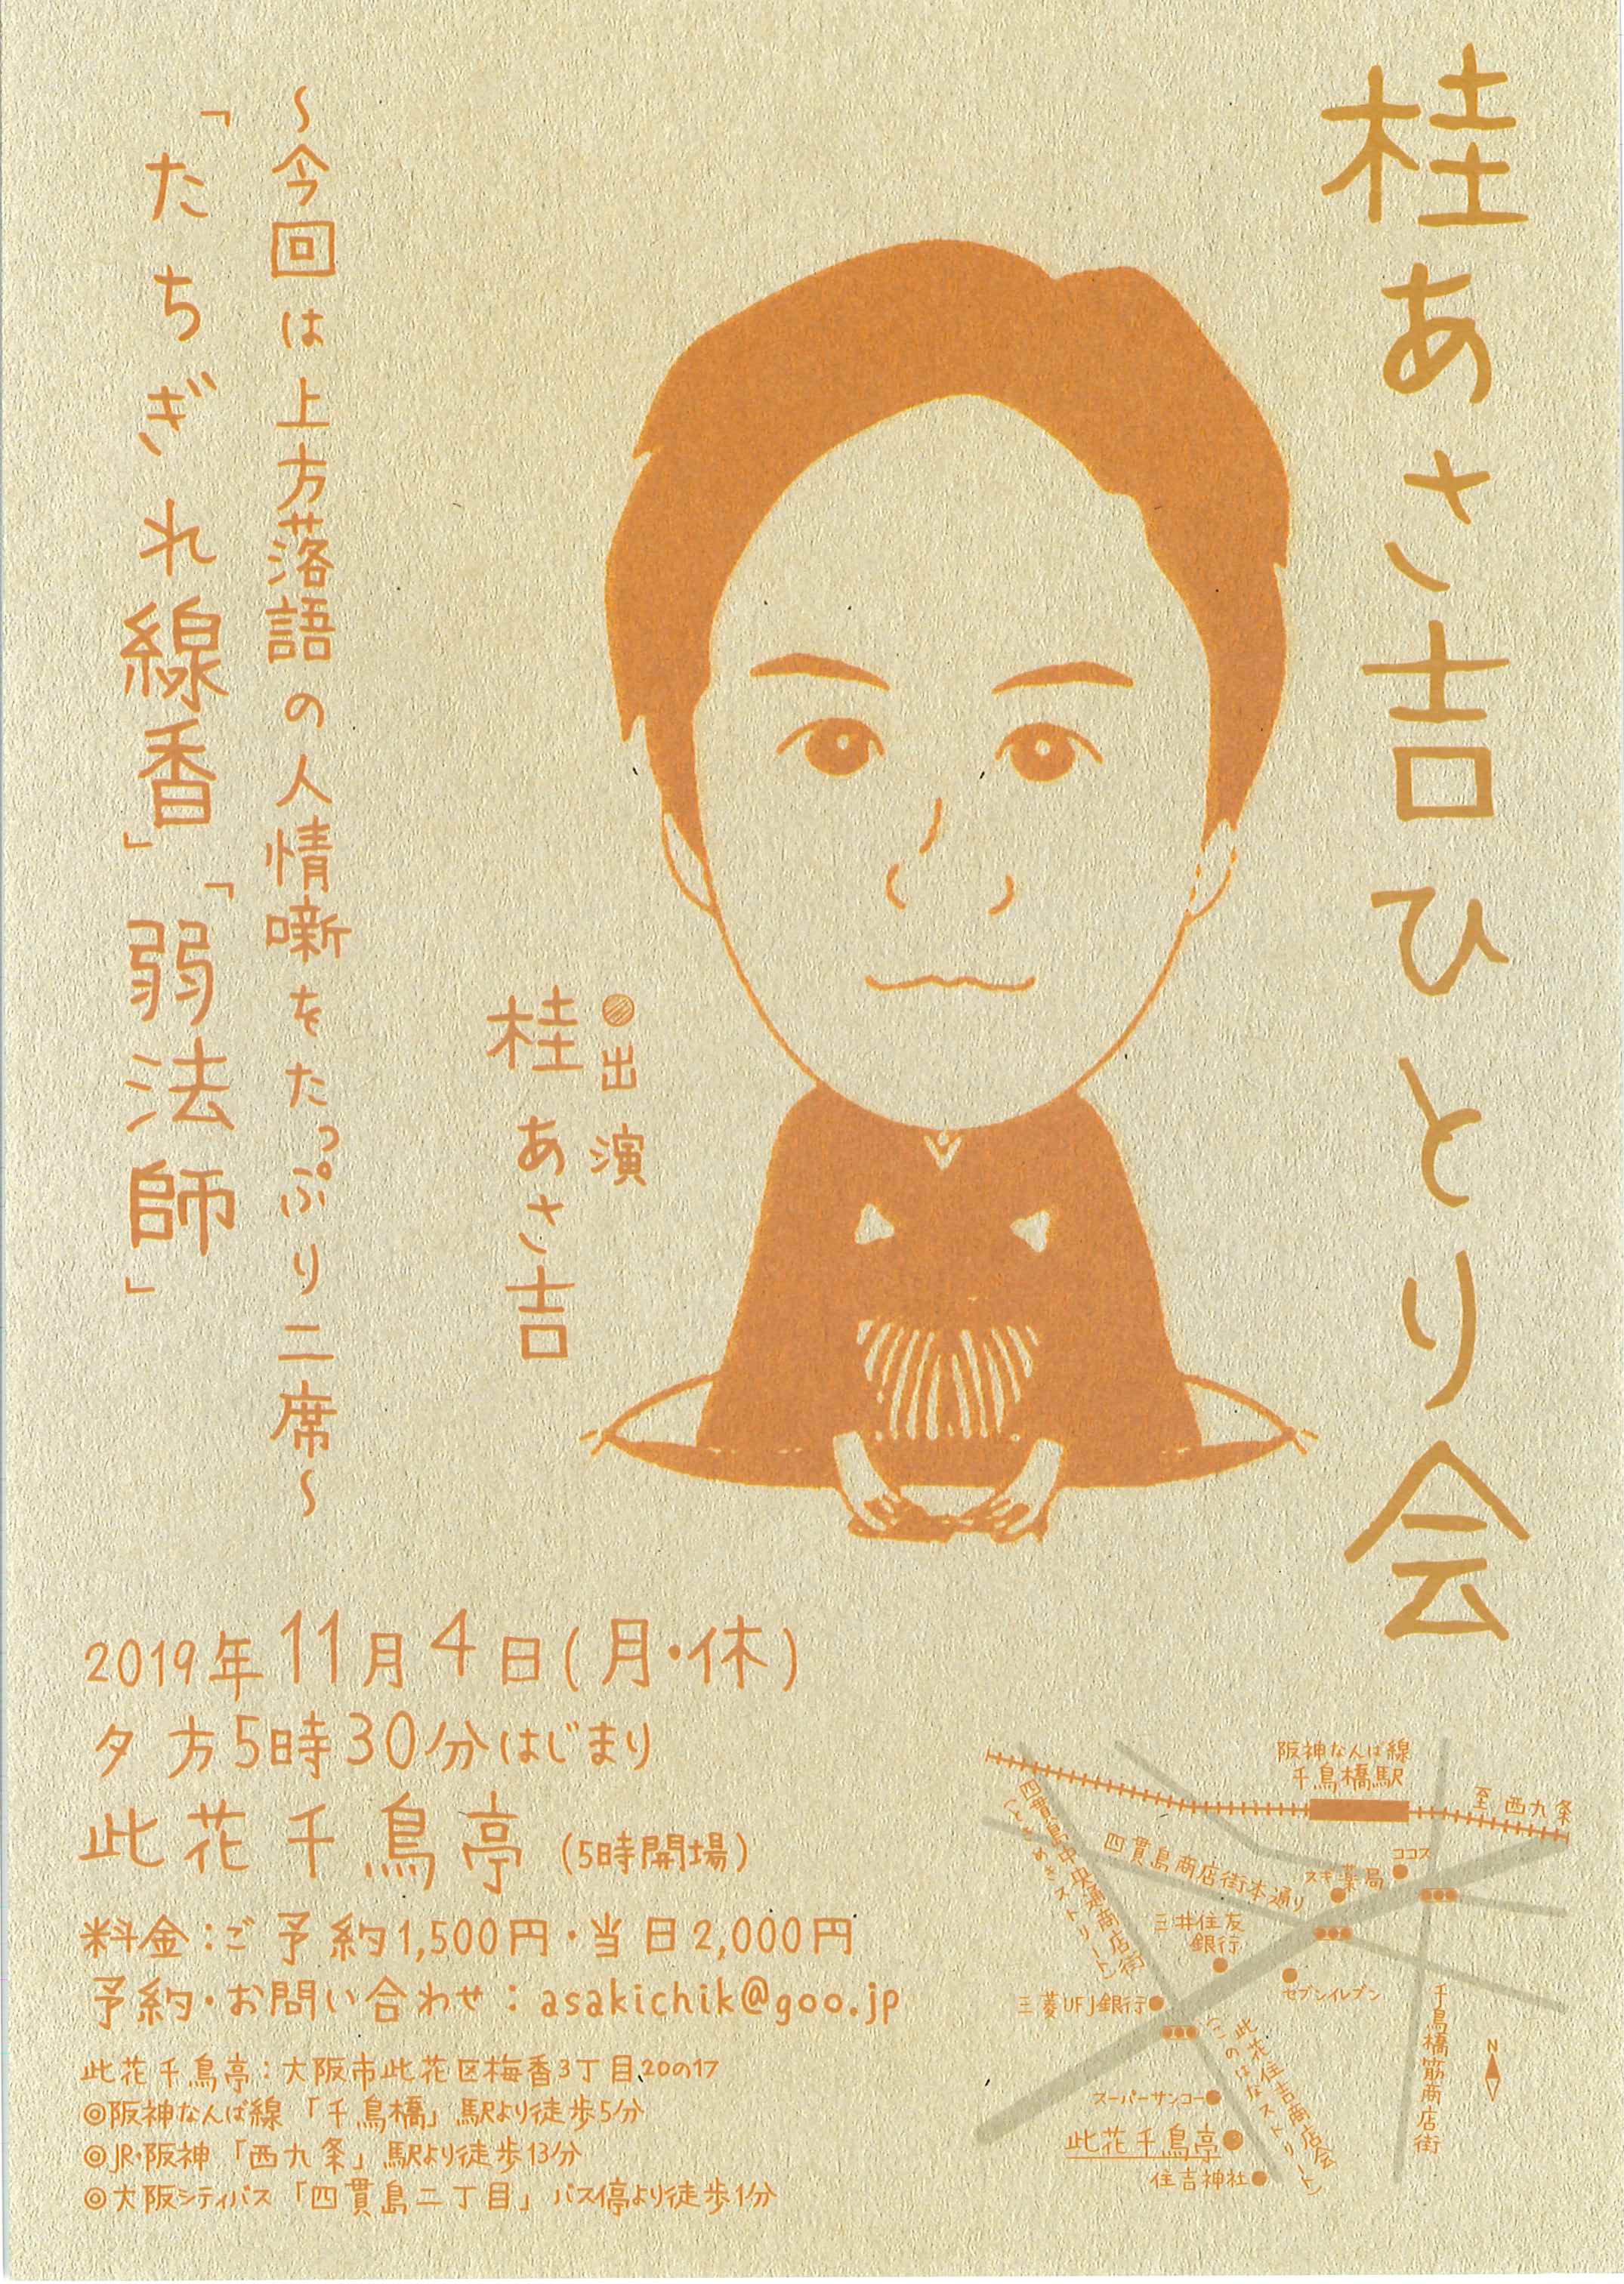 桂あさ吉ひとり会
●出演
桂あさ吉
～今回は上方落語の人情噺をたっぷり二席～
「たちぎれ線香」「弱法師」
2019年11月4日(月・休)
夕方5時30分はじまり
此花千鳥亭(5時開場)
料金:ご予約1,500円・当日2,000円
予約・お問い合わせ:asakichik@goo.jp
此花千鳥亭:大阪市此花区梅香3丁目20の17
◎阪神なんば線「千鳥橋」駅より徒歩5分
◎JR・阪神「西九条」駅より徒歩13分
◎大阪シティバス「四貫島二丁目」バス停より徒歩1分
阪神なんば線
千鳥橋駅
至西九条
四貫島中央通商店街
(ときめきストリート)
四貫島商店街本通り
ココス
スギ薬局
三井住友
銀行
セブンイレブン
三菱UFJ銀行
千鳥橋筋商店街
此花住吉商店会
(このはなストリート)
スーパーサンコー
此花千鳥亭
住吉神社
N